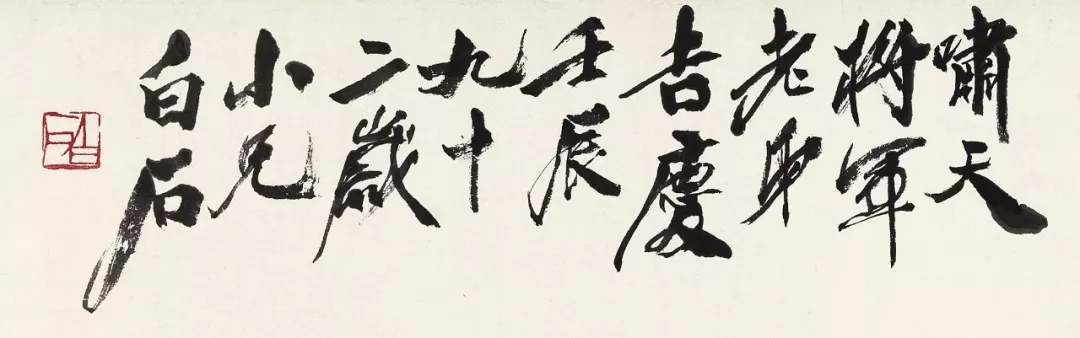 嘯天
將軍
老弟
吉慶
壬辰
九十
二歲
小兄
白石